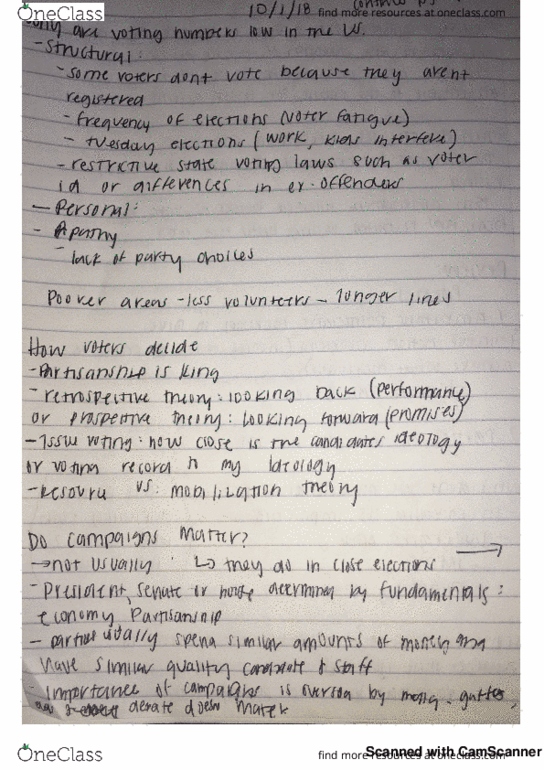 OneClass
10/1/18 find more resources at oneclass.com
are voting numbers low in the US.
- Structural:
- some voters dont vote because they arent
registered
- frequency of elections (voter fatigue)
- tuesday elections (work, kids interfere)
- restrictive state voting laws such as voter
id or differences in ex-offenders
- Personal:
- Apathy
- lack of party choices
Poorer areas - less volunteers - longer lines
How voters decide
- Partisanship is king
- retrospective theory: looking back (performance)
or prospective theory: looking forward (promises)
- Issue voting: how close is the candidates ideology
or voting record to my ideology
- resource vs. mobilization theory
Do campaigns matter?
→ not usually ↳ they do in close elections →
- President, Senate or house determined by fundamentals:
economy Partisanship
- parties usually spend similar amounts of money and
have similar quality candidate & staff
- importance of campaigns is overson by media. gaffes,
debate doesn matter
OneClass
find more resources at oneclass.com
Scanned with CamScanner